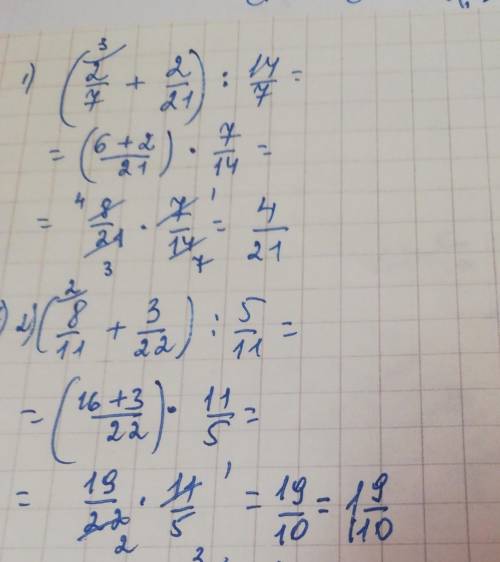 1) (2/7 ³ + 2/21) : 14/7 =
= (6+2/21) · 7/14 =
= ⁴ 8/21 ₃ · 7/14 ¹ ₇ = 4/21
2) (8/11 ² + 3/22) : 5/11 =
= (16+3/22) · 11/5 =
= 19/22 ₂ · 11/5 ¹ = 19/10 = 1 9/10